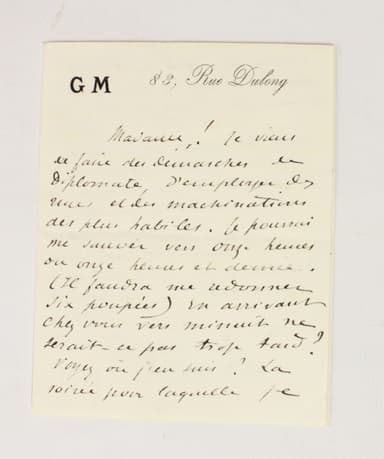 GM 83, Rue Dulong
Madame! Je viens
de faire des demarches de
Diplomate, d'employer des
ruses et des machinations
des plus habiles. Je pourrai
me sauver vers onze heures
ou onze heures et demie.
(Il faudra me donner
six poupées) En arrivant
chez vous vers minuit ne
serait-ce pas trop tard?
Voyez où j'en suis! La
soirée pour laquelle je